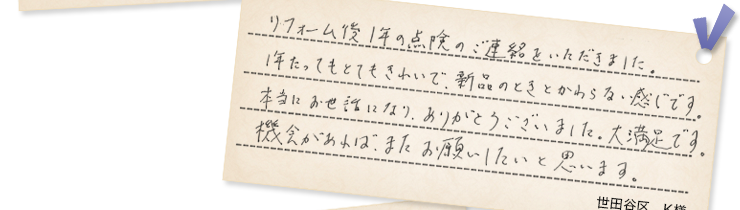 リフォーム後1年の点険のご連絡をいただきました。
1年たってもとてもきれいで、新品のときとかわらない感じです。
本当にお世話になり、ありがとうございました。大満足です。
機会があれば、またお願いしたいと思います。
世田谷区 K様